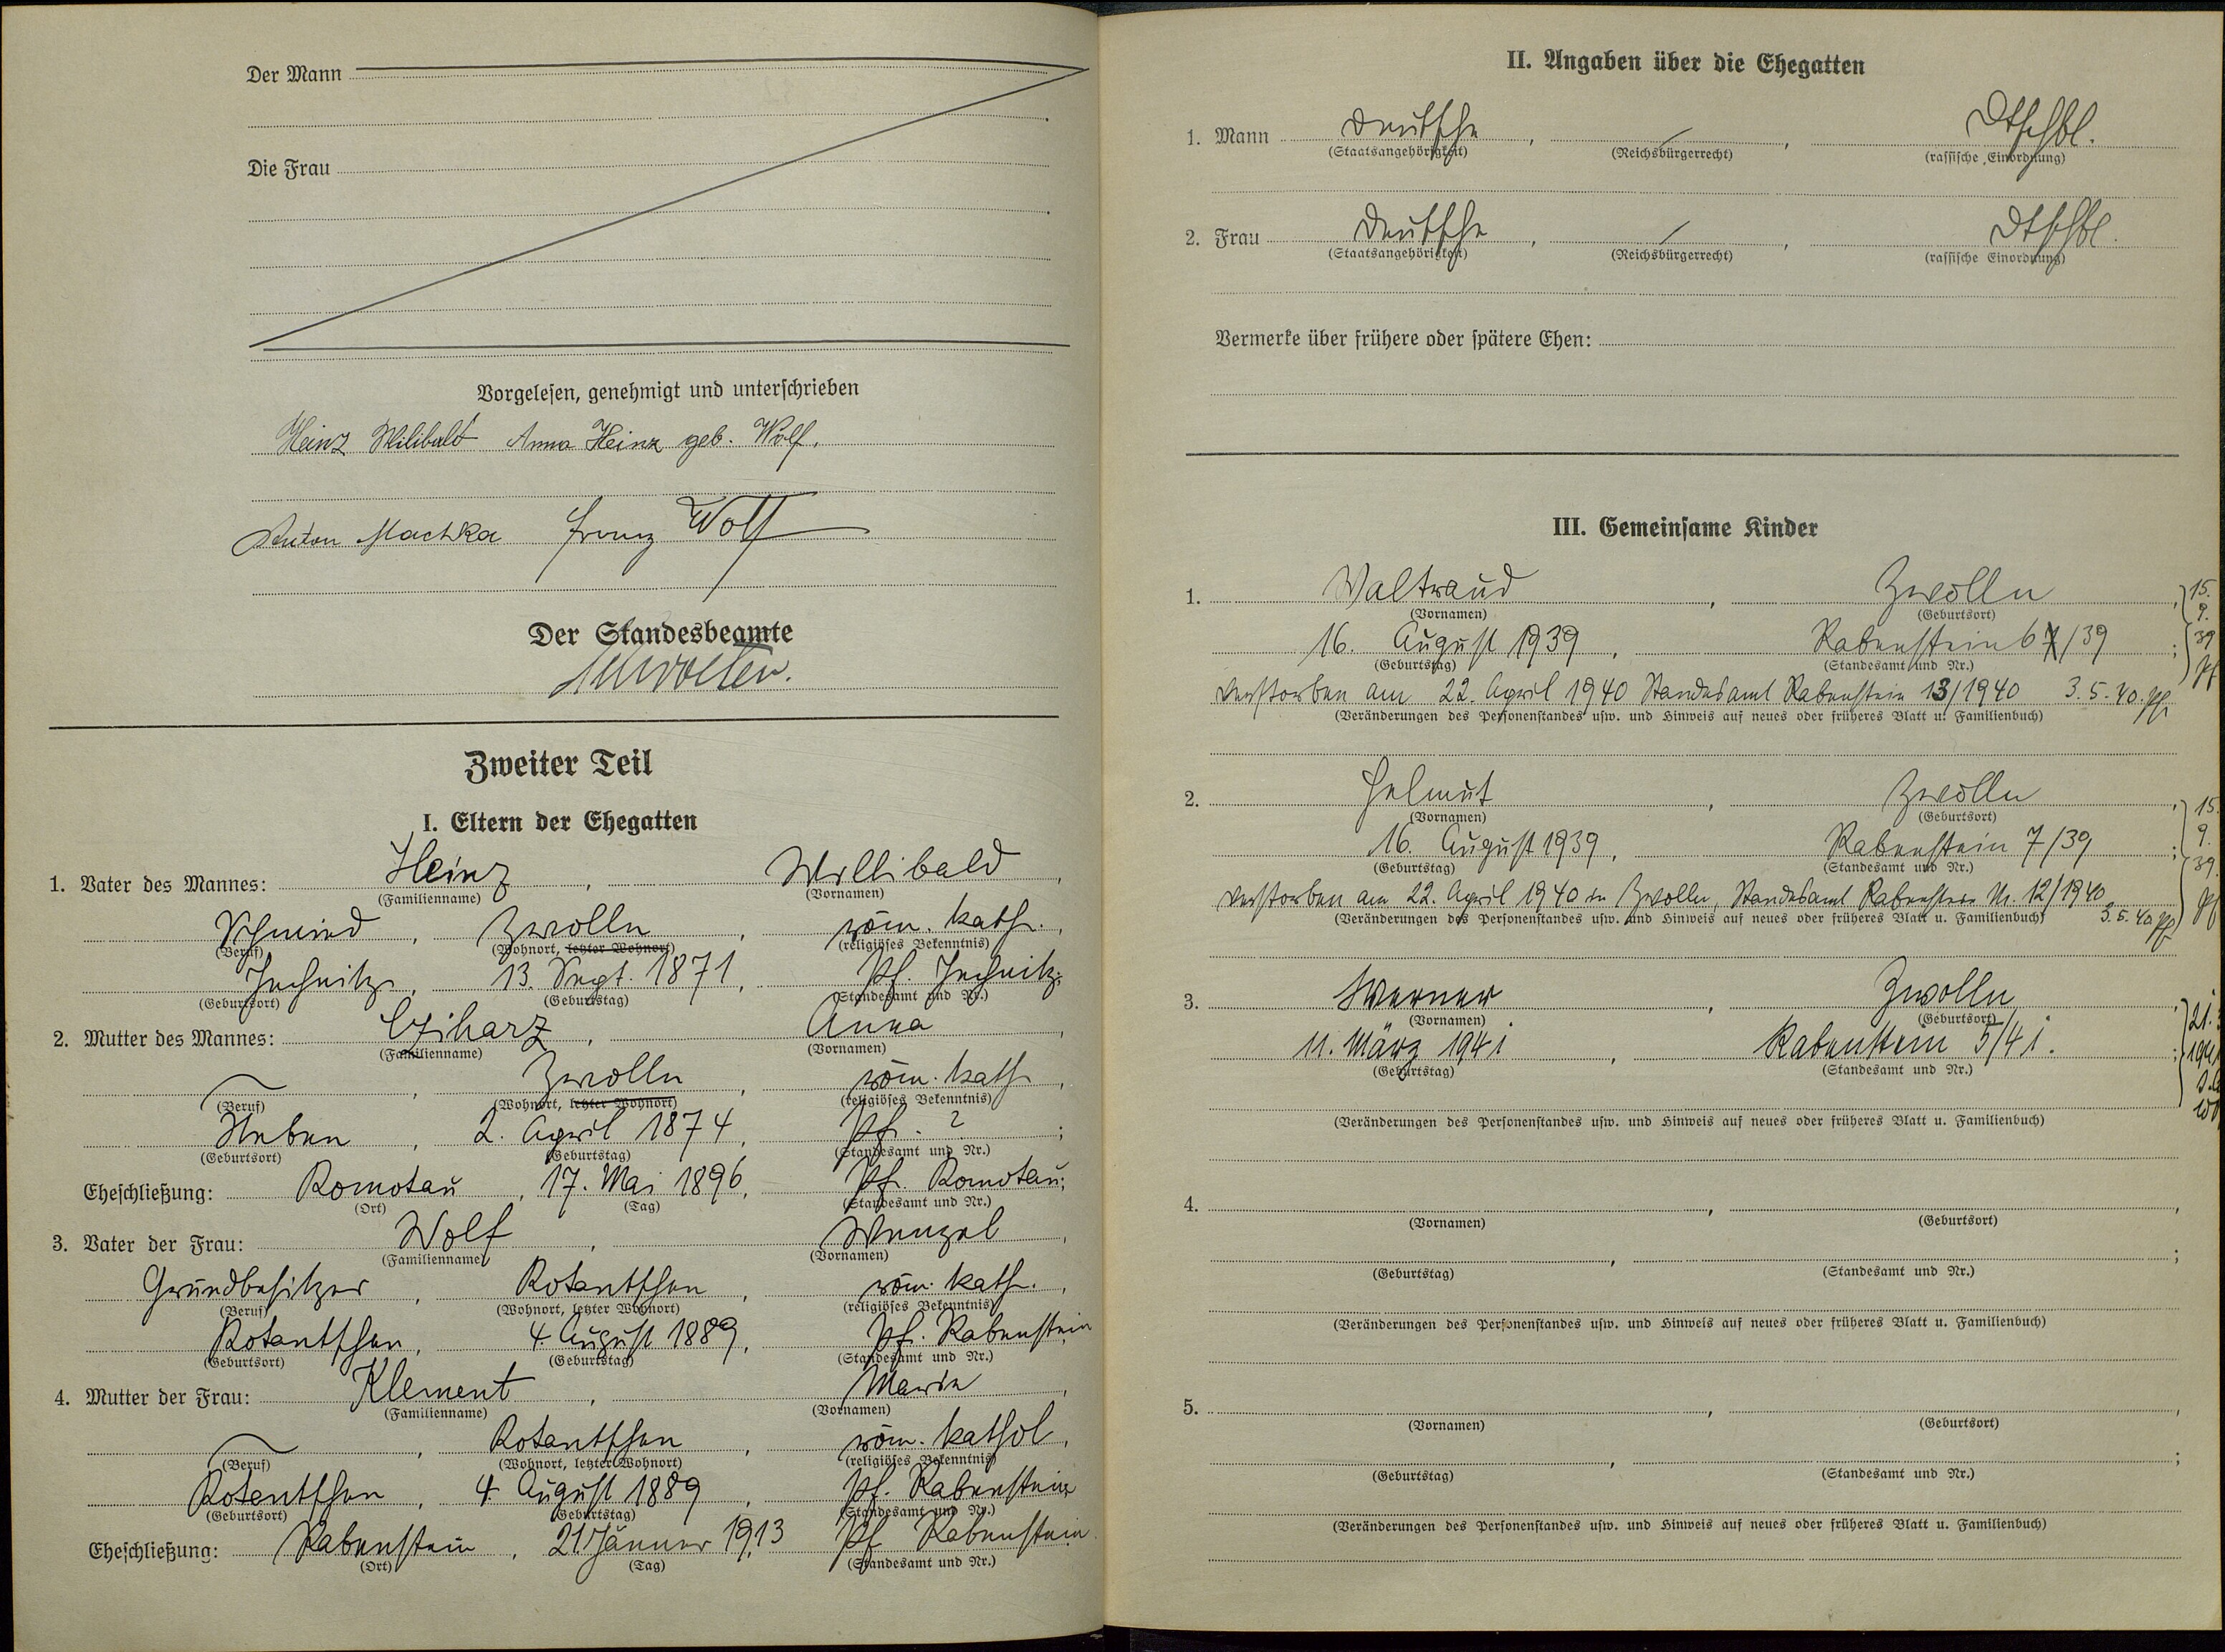 Der Mann
Die Frau
Vorgelesen, genehmigt und unterschrieben
Heinz Wilibald Anna Heinz geb. Wolf.
Anton Machka Franz Wolf
Der Standesbeamte
Zweiter Teil
I. Eltern der Ehegatten
1. Vater des Mannes: Heinz, Willibald,
(Familienname) (Vornamen)
Schmied, Zwolln, röm. kath.,
(Beruf) (Wohnort, letzter Wohnort) (religiöses Bekenntnis)
Jechnitz, 13. Sept. 1871, Pf. Jechnitz;
(Geburtsort) (Geburtstag) (Standesamt und Nr.)
2. Mutter des Mannes: Cziharz, Anna,
(Familienname) (Vornamen)
Zwolln, röm. kath,
(Beruf) (Wohnort, letzter Wohnort) (religiöses Bekenntnis)
2. April 1874, Pf. ?;
(Geburtsort) (Geburtstag) (Standesamt und Nr.)
Eheschließung: Komotau, 17. Mai 1896, Pf. Komotau;
(Ort) (Tag) (Standesamt und Nr.)
3. Vater der Frau: Wolf, Wenzel,
(Familienname) (Vornamen)
Grundbesitzer, Kotantschen, röm. kath.,
(Beruf) (Wohnort, letzter Wohnort) (religiöses Bekenntnis)
Kotantschen, 4. August 1889, Pf. Rabenstein
(Geburtsort) (Geburtstag) (Standesamt und Nr.)
4. Mutter der Frau: Klement, Marie,
(Familienname) (Vornamen)
Kotantschen, röm. kathol,
(Beruf) (Wohnort, letzter Wohnort) (religiöses Bekenntnis)
Kotentschen, 4. August 1889, Pf. Rabenstein
(Geburtsort) (Geburtstag) (Standesamt und Nr.)
Eheschließung: Rabenstein, 21 Jänner 1913 Pf Rabenstein
(Ort) (Tag) (Standesamt und Nr.)
II. Angaben über die Ehegatten
1. Mann Deutsche, /, Dtschbl.
(Staatsangehörigkeit) (Reichsbürgerrecht) (rassische Einordnung)
2. Frau Deutsche, /, Dtschbl.
(Staatsangehörigkeit) (Reichsbürgerrecht) (rassische Einordnung)
Vermerke über frühere oder spätere Ehen:
III. Gemeinsame Kinder
1. Waltraud, Zwolln, 15.
(Vornamen) (Geburtsort) 9.
16. August 1939, Rabenstein 6/39; 39
(Geburtstag) (Standesamt und Nr.)
verstorben am 22. April 1940 Standesamt Rabenstein 13/1940 3.5.40.
(Veränderungen des Personenstandes usw. und Hinweis auf neues oder früheres Blatt u. Familienbuch)
2. Helmut, Zwolln, 15.
(Vornamen) (Geburtsort) 9.
16. August 1939, Rabenstein 7/39; 39.
(Geburtstag) (Standesamt und Nr.)
verstorben am 22. April 1940 in Zwolln, Standesamt Rabenstein Nr. 12/1940
(Veränderungen des Personenstandes usw. und Hinweis auf neues oder früheres Blatt u. Familienbuch) 3.5.40
3. Werner, Zwolln, 21.
(Vornamen) (Geburtsort)
11. März 1941, Rabenstein 5/41.; 1941
(Geburtstag) (Standesamt und Nr.)
(Veränderungen des Personenstandes usw. und Hinweis auf neues oder früheres Blatt u. Familienbuch)
4. , ,
(Vornamen) (Geburtsort)
, ;
(Geburtstag) (Standesamt und Nr.)
(Veränderungen des Personenstandes usw. und Hinweis auf neues oder früheres Blatt u. Familienbuch)
5. , ,
(Vornamen) (Geburtsort)
, ;
(Geburtstag) (Standesamt und Nr.)
(Veränderungen des Personenstandes usw. und Hinweis auf neues oder früheres Blatt u. Familienbuch)